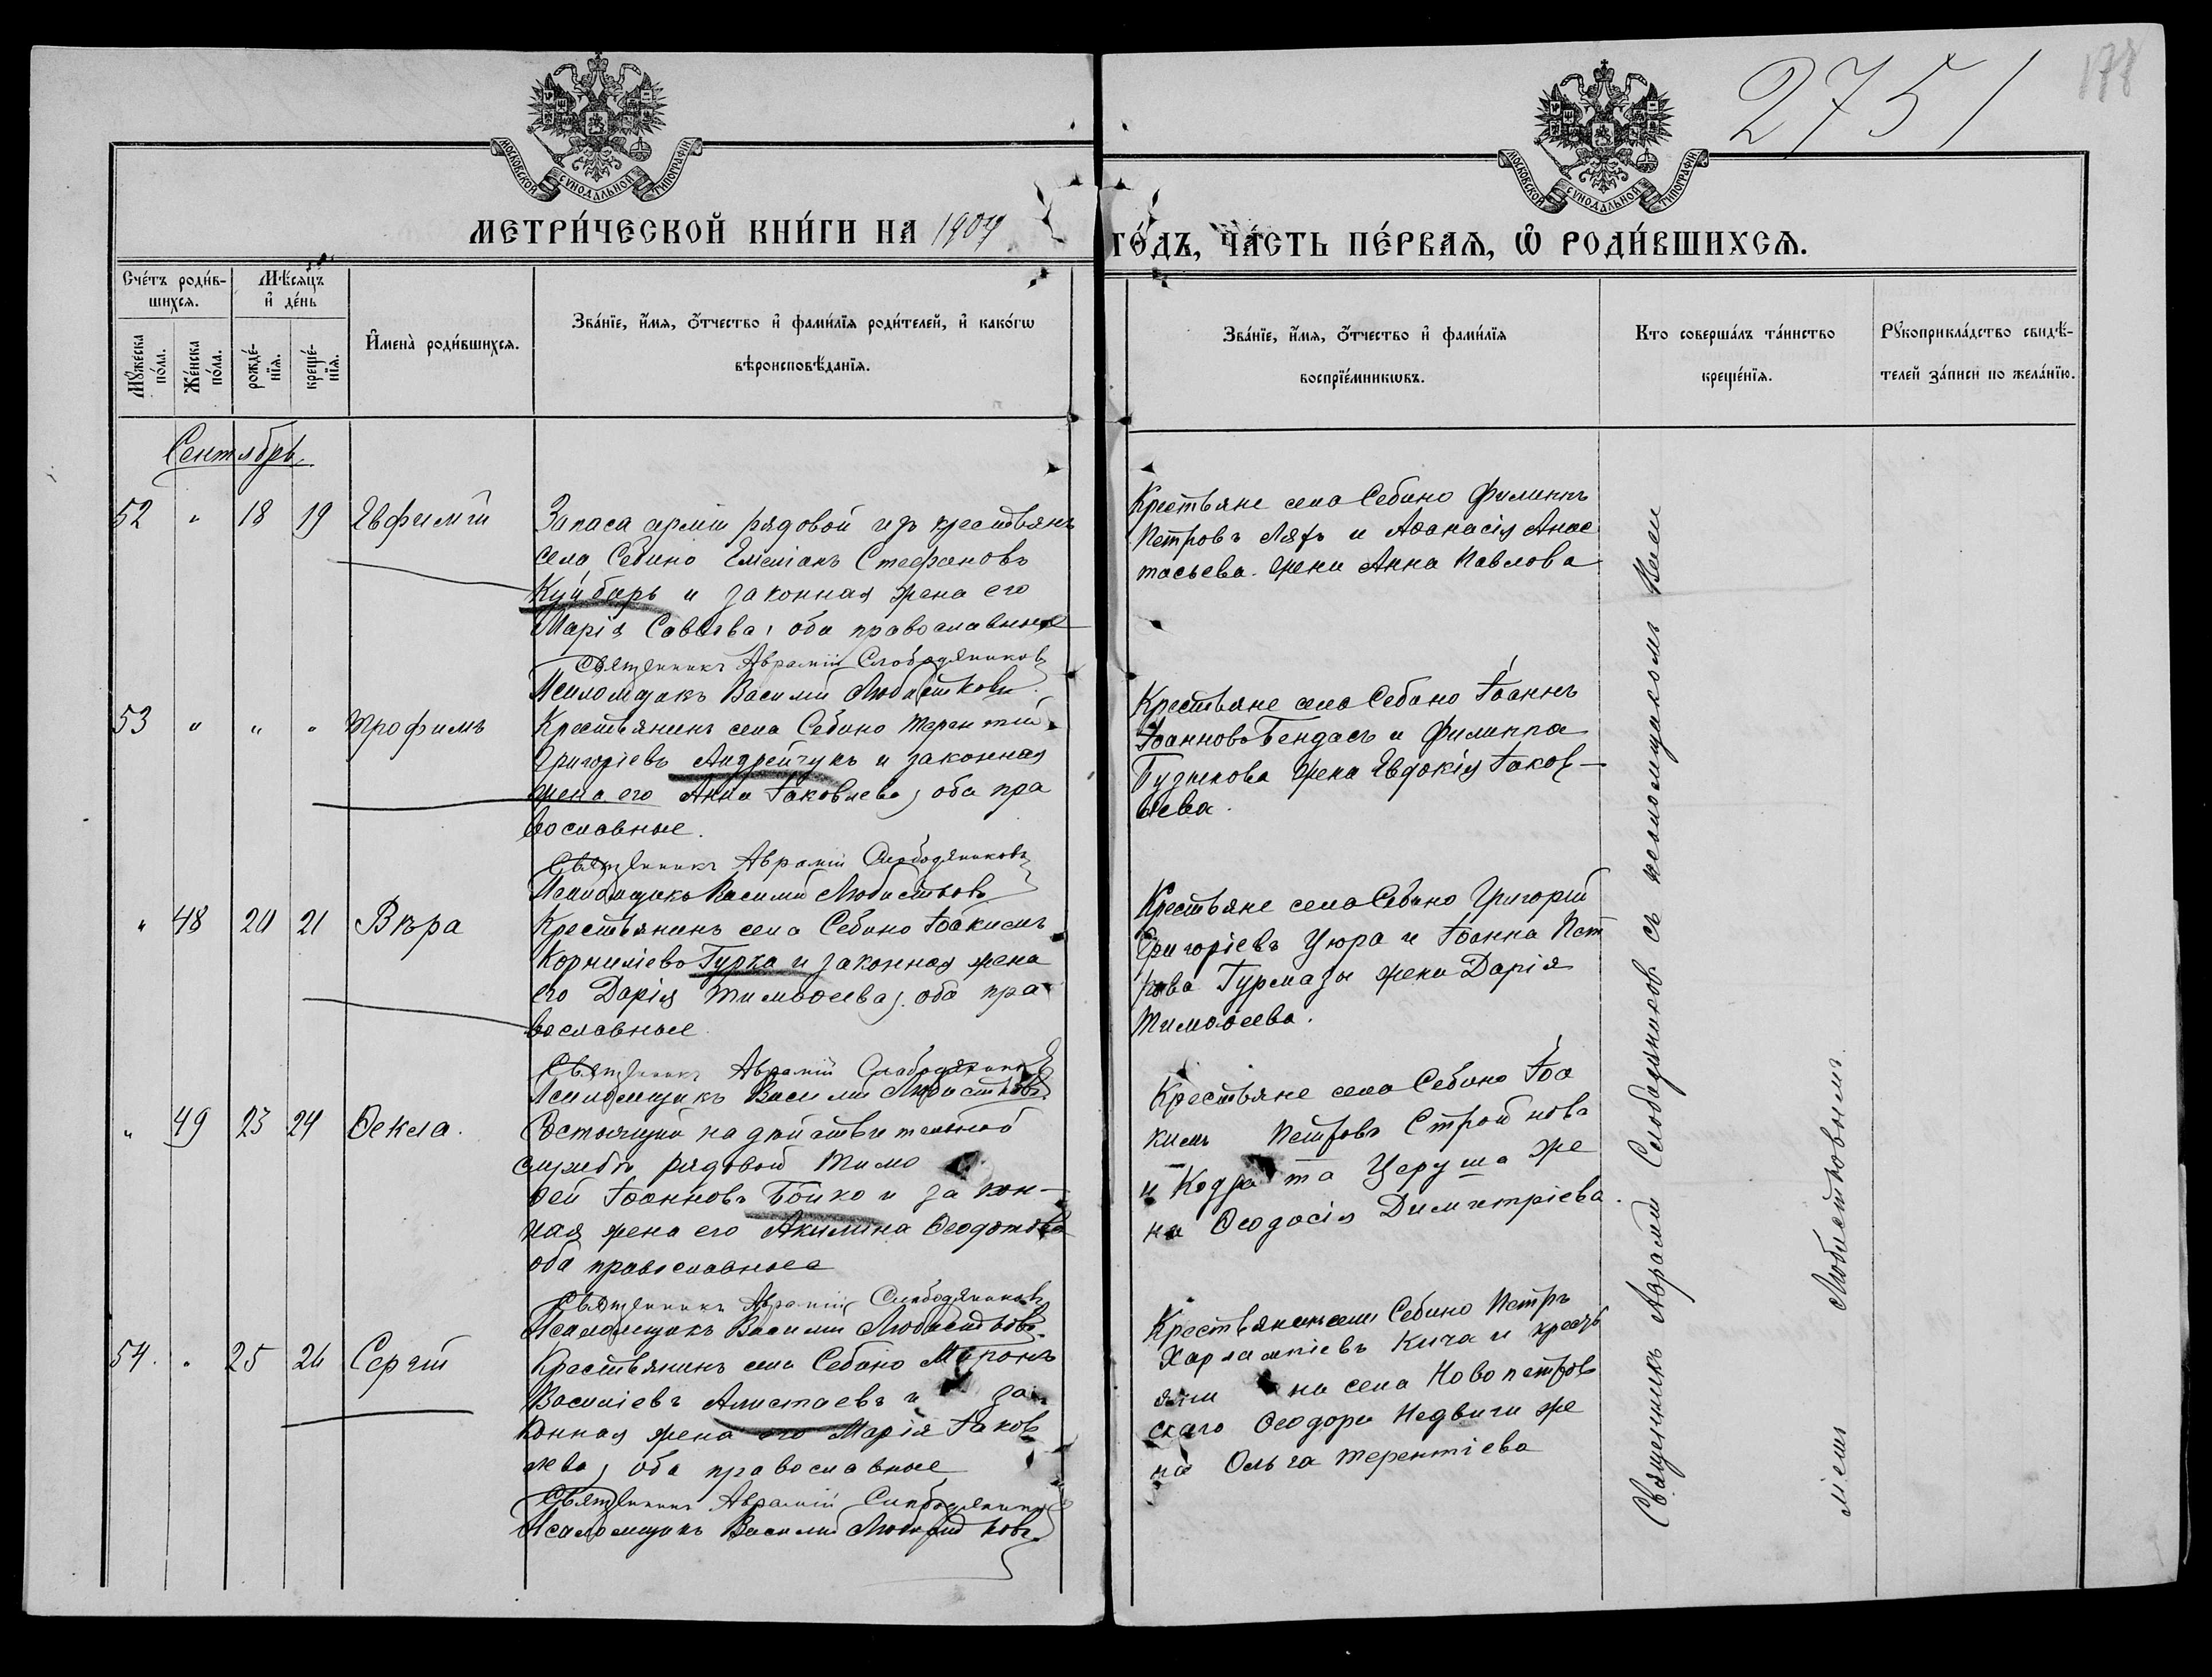 2751
178
МОСКОВСКОЙ СѴНОДАЛЬНОЙ ТИПОГРАФІИ.
МОСКОВСКОЙ СѴНОДАЛЬНОЙ ТИПОГРАФІИ.
МЕТРИ́ЧЕСКОЙ КНИ́ГИ НА 1904
ГО́ДЪ, ЧА́СТЬ ПЕ́РВАѦ, Ѡ РОДИ́ВШИХСѦ.
Счéтъ роди́в-
шихсѧ.
Мꙋ́жеска
по́ла.
Же́нска
по́ла.
Мѣ́сѧцъ
и҆ де́нь
рожде́-
нїѧ.
креще́-
нїѧ.
И҆мена̀ роди́вшихсѧ.
Зва́нїе, и҆́мѧ, ѻ҆́тчество и҆ фами́лїѧ роди́телей, и҆ како́гѡ
вѣроисповѣ́данїѧ.
Зва́нїе, и҆́мѧ, ѻ҆́тчество и҆ фами́лїѧ
воспрїе́мникѡвъ.
Кто соверша́лъ та́инство
креще́нїѧ.
Рꙋкоприкла́дство свидѣ́-
телей за́писи по жела́нїю.
Сентябрь
52 " 18 19 Евфимій
Запаса арміи рядовой изъ крестьянъ
села Себино Емеліанъ Стефановъ
Куйбарь и законная жена его
Марія Саввева, оба православные
Священникъ Аврамій Слободяников
Псаломщикъ Василій Любистковъ
Крестьяне села Себино Филиппъ
Петровъ Ляхъ и Аѳанасія Анас
тасьева жена Анна Павлова
53 " " " Трофимъ
Крестьянинъ села Себино Терентій
Григоріевъ Андрейчукъ и законная
жена его Анна Іаковлева, оба пра
вославные.
Священникъ Аврамій Слободяниковъ
Псаломщикъ Василій Любистковъ
Крестьяне села Себино Іоаннъ
Іоанновъ Бендасъ и Филиппа
Бузынова жена Евдокія Іаков-
лева.
" 48 20 21 Вѣра
Крестьянинъ села Себино Іоакимъ
Корниліевъ Гурка и законная жена
его Дарія Тимоѳеева, оба пра
вославные.
Священникъ Аврамій Слободяников
Псаломщикъ Василій Любистковъ
Крестьяне села Себино Григорій
Григоріевъ Цюра и Іоанна Пет
рова Гурмазы жена Дарія
Тимоѳеева.
" 49 23 24 Ѳекла.
Состоящій на дѣйствительной
службѣ рядовой Тимо
ѳей Іоанновъ Бойко и закон-
ная жена его Акилина Ѳеодотова
оба православные
Священникъ Аврамій Слободяниковъ
Псаломщикъ Василій Любистковъ.
Крестьяне села Себино Іоа
кимъ Петровъ Строй нов
и Кодрата Церуша же
на Ѳеодосія Димитріева.
54. " 25 26 Сергій
Крестьянинъ села Себино Миронъ
Василіевъ Алистаевъ и за
конная жена его Марія Іаков
лева, оба православные
Священникъ Аврамій Слободяников
Псаломщикъ Василій Любистковъ.
Крестьянинъ села Себино Петръ
Харлампіевъ Кича и кресть
яни на села Новопетров
скаго Ѳеодора Недвиги же
на Ольга Терентіева
Священникъ Аврамій Слободяников съ псаломщикомъ Васи
ліемъ Любистковымъ.